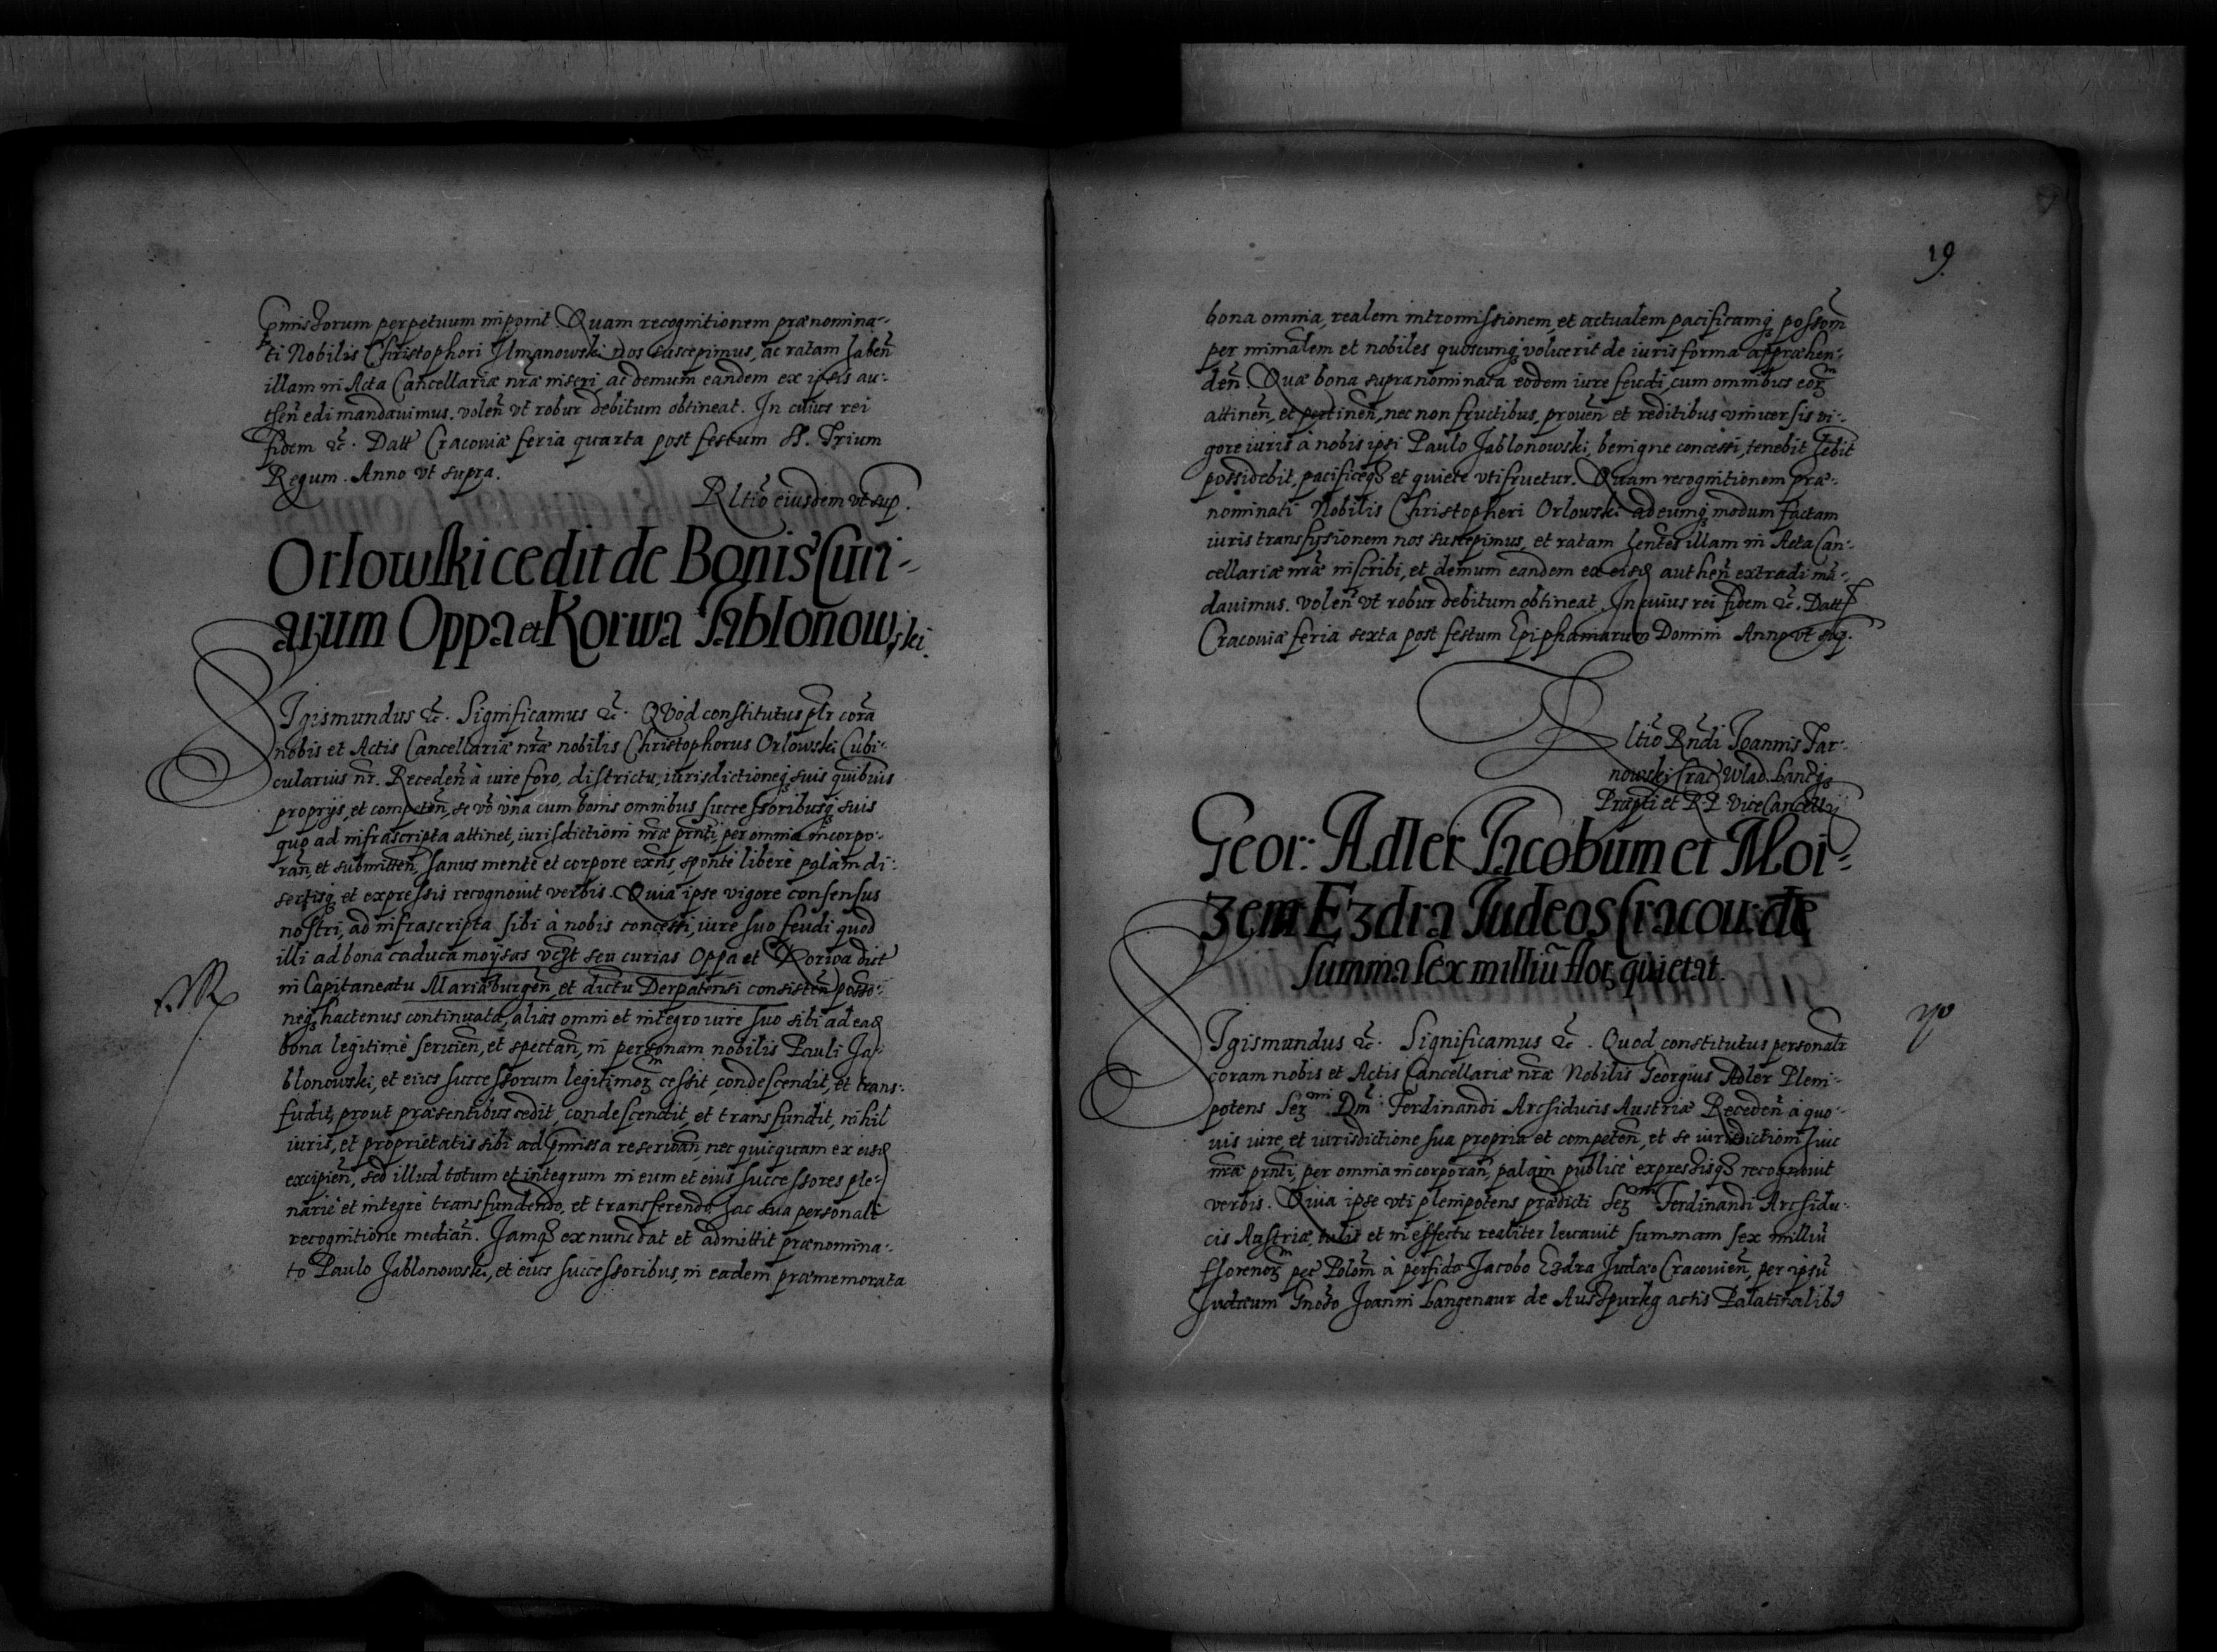 p̄missorum perpetuum imponit. Quam recognitionem prænomina-
ti Nobilis Christophori Ilmanowski nos suscepimus, ac ratam haben̄
illam in Acta Cancellariæ nr̄æ inseri, ac demum eandem ex ipsis au-
then̄ edi mandavimus. volen̄ vt robur debitum obtineat. In cuius rei
fidem &c. Datt Cracoviæ feria quarta post festum SS. Trium
Regum. Anno vt supra.
Rltio eiusdem vt sup.
Orlowski cedit de Bonis Curi-
arum Oppa et Korwa Jablonowski.
SIgismundus &c. Significamus &c. Quod constitutus plr corā
nobis et Actis Cancellariæ nr̄æ nobilis Christophorus Orlowski Cubi-
cularius nr̄. Receden̄ à iure foro, districtu, iurisdictioneq; suis quibuis
proprijs, et competen̄, se vō vna cum bonis omnibus successoribusq; suis
quo ad infrascripta attinet, iurisdictioni nr̄æ prn̄ti, per omnia incorpo-
ran̄, et submitten̄, sanus mente et corpore exn̄s, sponte libere palam di-
sertisq; et expressis recognovit verbis. Quia ipse vigore consensus
nostri, ad infrascripta sibi à nobis concessi, iure suo feudi quod
illi ad bona caduca moysas vc̄zt seu curias Oppa et Koriva dict
in Capitaneatu Mariaburgen̄, et dictu Derpatensi consisten̄ posso-
neq; hactenus continuata, alias omni et integro iure suo sibi ad ead
bona legitime servien̄, et spectan̄, in personam nobilis Pauli Ja-
blonowski, et eius successorum legitimoꝝ cessit, condescendit, et trans-
fudit, prout præsentibus cedit, condescendit, et transfundit, nihil
iuris, et proprietatis sibi ad p̄missa reservan̄, nec quicquam ex eisd
excipien̄, sed illud totum et integrum in eum et eius successores ple-
nariè et integrè transfundendo, et transferendo hac sua personali
recognitione median̄. Jamq; ex nunc dat et admittit prænomina-
to Paulo Jablonowski, et eius successoribus, in eadem præmemorata
19
bona omnia, realem intromissionem, et actualem pacificamq; possom̄
per minālem et nobiles quoscunq; voluerit de iuris forma apprehen-
den̄. Quæ bona supranominata eodem iure feudi, cum omnibus eoꝝ
attinen̄, et pertinen̄, nec non fructibus, proven̄ et reditibus vniversis vi-
gore iuris à nobis ipsi Paulo Jablonowski, benigne concessi, tenebit hēbit
possidebit, pacificeq; et quiete vtifruetur. Quam recognitionem præ-
nominati Nobilis Christopheri Orlowski ad eumq; modum factam
iuris transfusionem nos suscepimus, et ratam hentes illam in Acta Can-
cellariæ nr̄æ inscribi, et demum eandem ex eisd authen̄ extradi mā-
davimus. volen̄ vt robur debitum obtineat. In cuius rei fidem &c. Datt
Cracoviæ feria sexta post festum Epiphaniarum Domini Anno vt sup.
Rltio Rn̄di Joannis Tar-
nowski Crac Wlad. Lanc;
Præpti et R. P. Vice Cancell;
Geor: Adler Jacobum et Moi-
zem Ezdra Judeos Cracou: de
summa sex milliū flor, quietat.
SIgismundus &c. Significamus &c. Quod constitutus personalr
coram nobis et Actis Cancellariæ nr̄æ Nobilis Georgius Adler Pleni-
potens Serm̄i Dn̄i: Ferdinandi Archiducis Austriæ Receden̄ à quo-
uis iure, et iurisdictione sua propria et competen̄, et se iurisdictioni huic
nr̄æ prn̄ti, per omnia incorporan̄, palam publicè expressisq; recognovit
verbis. Quia ipse vti plenipotens prædicti Serm̄i Ferdinandi Archidu-
cis Austriæ, tulit et in effectu realiter levavit summam sex milliū
florenoꝝ pec Polon̄ à perfido Jacobo Ezdra Judæo Cracovien̄, per ipsū
Judæum Gnōso Joanni Langenaur de Auspurkg actis Palatinalibꝰ